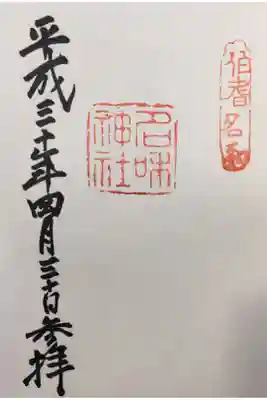 伯耆名和
名和神社
平成三十年四月三十日参拝